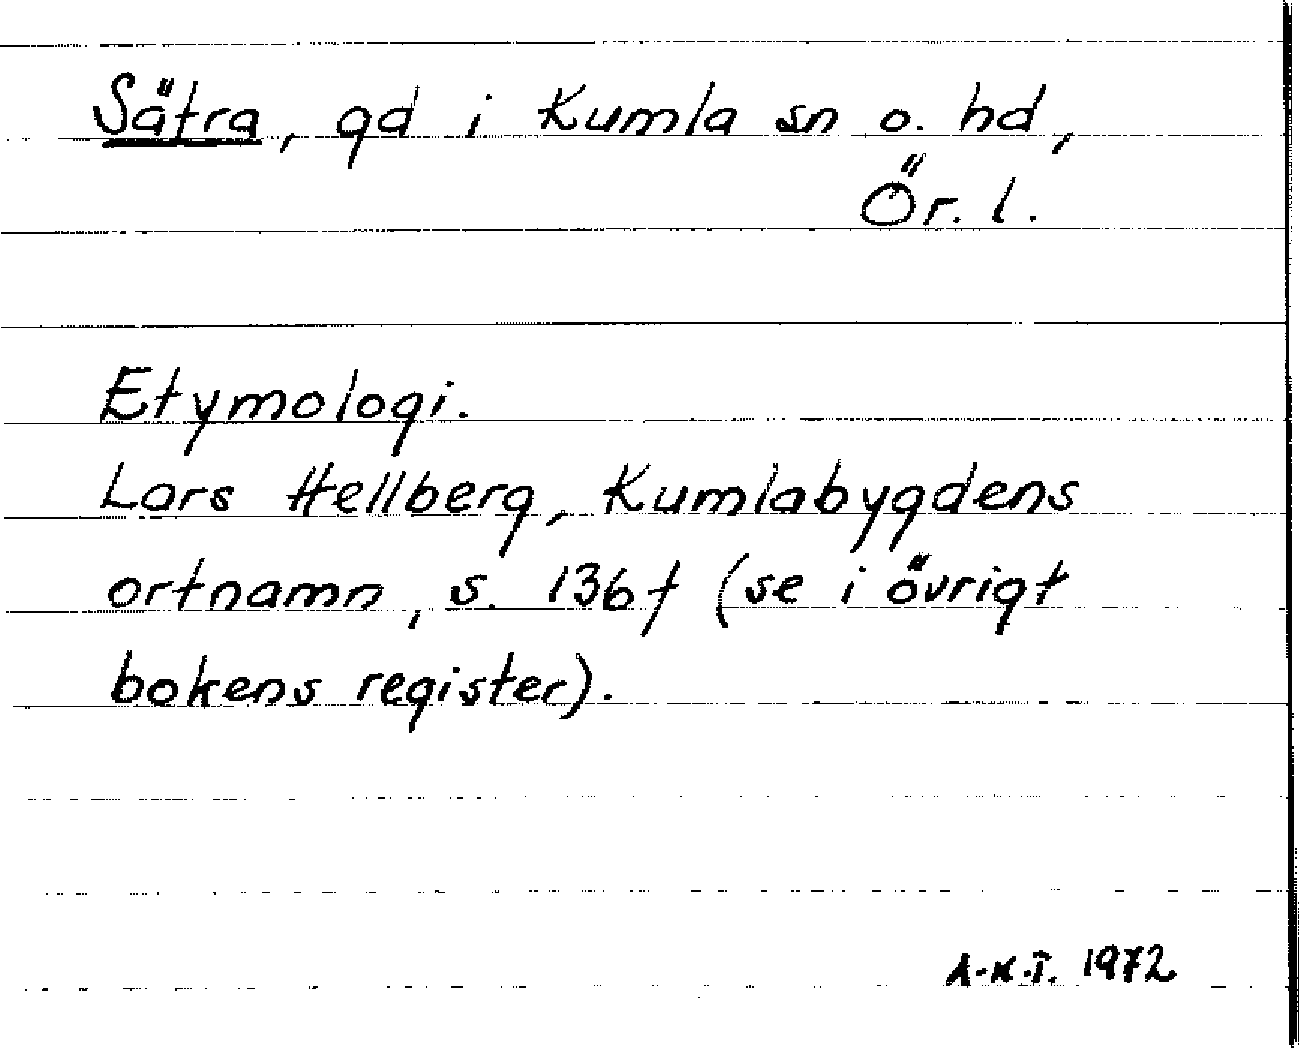 Sätra, gd i Kumla sn o. hd,
Ör. l.
Etymologi.
Lars Hellberg, Kumlabygdens
ortnamn, s. 136f (se i övrigt
bokens register).
A-K.T. 1972